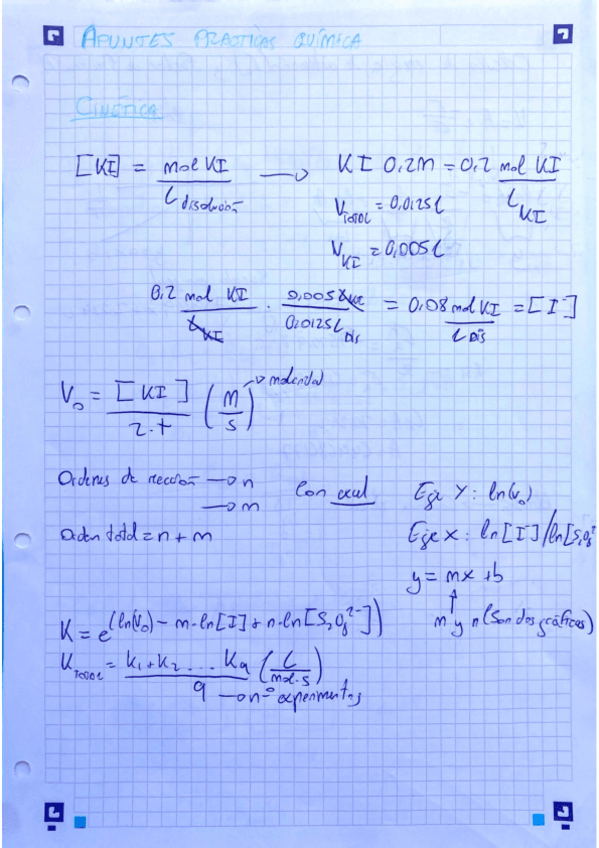 APUNTES PRACTICAS QUÍMICA
CINÉTICA
[KI] = mol KI / L disolución → KI 0,2M = 0,2 mol KI / L KI
V TOTAL = 0,0125 L
V KI = 0,005 L
0,2 mol KI / L KI · 0,005 L KI / 0,0125 L Dis = 0,08 mol KI / L DIS = [I⁻]
V₀ = [KI] / 2·t (M/s) → molaridad
Ordenes de reacción → n
→ m
Con excel
Orden total = n + m
Eje Y: ln(v₀)
Eje X: ln[I⁻]/ln[S₂O₈²⁻
y = mx + b
m y n (Son dos gráficas)
K = e^(ln(V₀) - m·ln[I] + n·ln[S₂O₈²⁻])
K TOTAL = K₁ + K₂ ... K₉ / 9 (L / mol·s)
→ nº experimentos